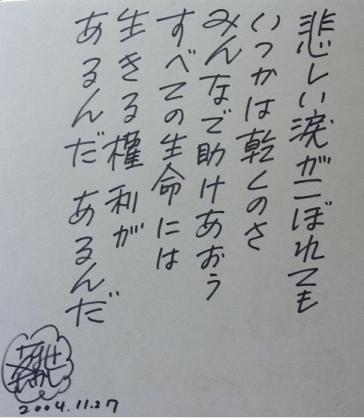 悲しい涙がこぼれても
いつかは乾くのさ
みんなで助けあおう
すべての生命には
生きる権利が
あるんだ あるんだ
2004.11.27